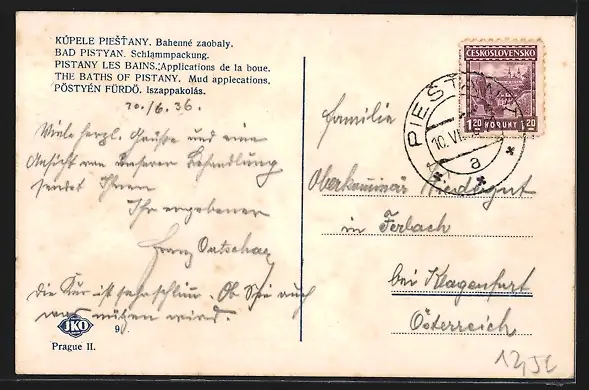 KÚPELE PIEŠŤANY. Bahenné zaobaly.
BAD PISTYAN. Schlammpackung.
PISTANY LES BAINS. Applications de la boue.
THE BATHS OF PISTANY. Mud applecations.
PÖSTYÉN FÜRDŐ. Iszappakolás.
10./6.36.
Viele herzl. Grüße und eine
Ansicht von unserer Behandlung
sendet Ihnen
Ihr ergebener
Franz
Die Kur ist sehr schlimm. Ob Sie auch
was nützen wird.
JKO
9
Prague II.
ČESKOSLOVENSKO
1.20 KORUNY 1.20
PIEŠŤANY
10. VI.
a
Familie
Oberkommissär Niedergut
in Ferlach
bei Klagenfurt
Österreich